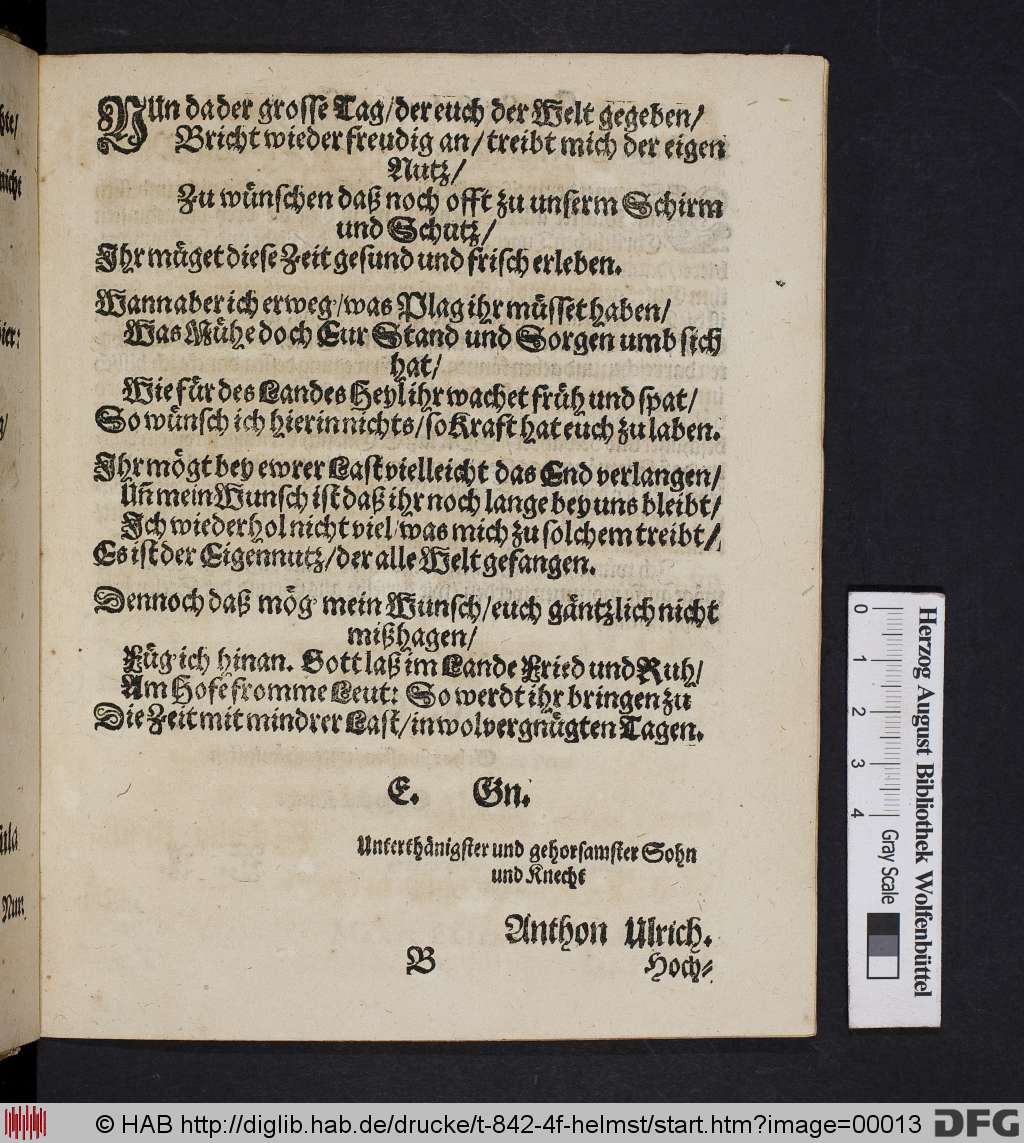 NUn da der grosse Tag/ der euch der Welt gegeben/
Bricht wieder freudig an/ treibt mich der eigen
Nutz/
Zu wünschen daß noch offt zu unserm Schirm
und Schutz/
Ihr müget diese Zeit gesund und frisch erleben.
Wann aber ich erweg/ was Plag ihr müsset haben/
Was Mühe doch Eur Stand und Sorgen umb sich
hat/
Wie für des Landes Heyl ihr wachet früh und spat/
So wünsch ich hierin nichts/ so Kraft hat euch zu laben.
Ihr mögt bey ewrer Last vielleicht das End verlangen/
Uñ mein Wunsch ist daß ihr noch lange bey uns bleibt/
Ich wiederhol nicht viel/ was mich zu solchem treibt/
Es ist der Eigennutz/ der alle Welt gefangen.
Dennoch daß mög mein Wunsch/ euch gäntzlich nicht
mißhagen/
Füg ich hinan. Gott laß im Lande Fried und Ruh/
Am Hofe fromme Leut: So werdt ihr bringen zu
Die Zeit mit mindrer Last/ in wolvergnügten Tagen.
E. Gn.
Unterthänigster und gehorsamster Sohn
und Knecht
Anthon Ulrich.
B Hoch-
nicht
hier:
Nun
Herzog August Bibliothek Wolfenbüttel
0 1 2 3 4 Gray Scale
© HAB http://diglib.hab.de/drucke/t-842-4f-helmst/start.htm?image=00013
DFG